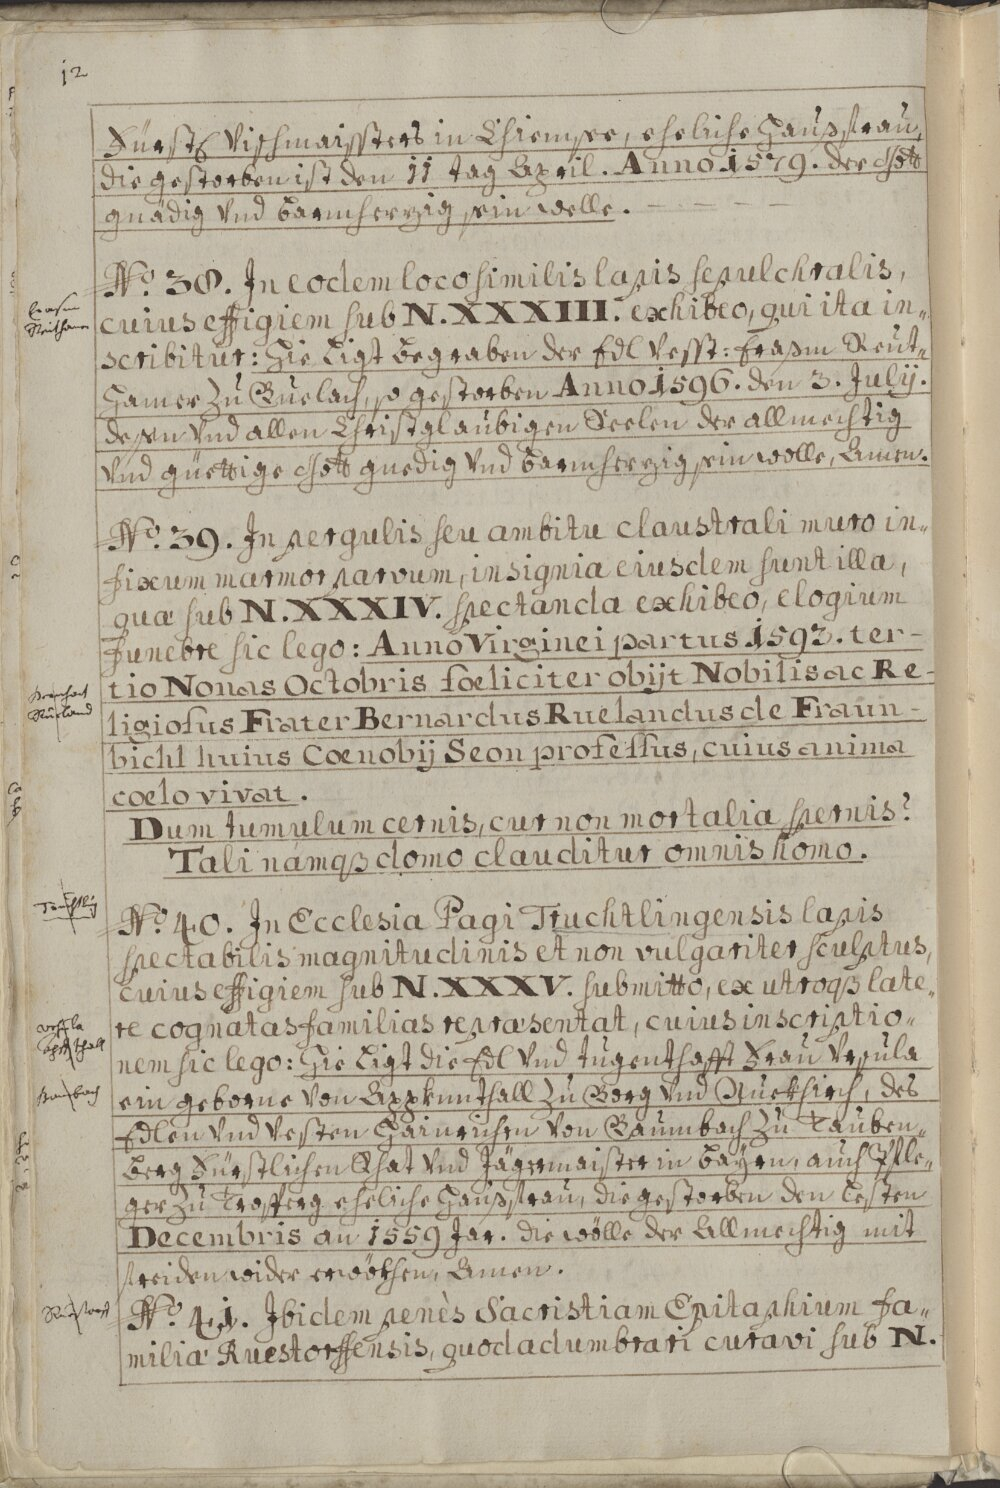 12
Fürstl Vischmaisters in Chiemsee, eheliche Haußfrau,
die gestorben ist den 11 tag April. Anno 1579. der Gott
gnädig Vnd barmherzig sein welle. - - - - -
No. 38. In eodem loco similis lapis sepulchralis,
cuius effigiem sub N. XXXIII. exhibeo, qui ita in„
scribitur: Hie Ligt begraben der Edl Vesst: Eraßm Reut„
Hamer zu Buelach, so gestorben Anno 1596. den 3. Julÿ.
deßen Vnd allen Christglaubigen Seelen der allmechtig
Vnd güettige Gott gnedig Vnd barmherzig sein wolle, Amen.
No. 39. In pergulis seu ambitu claustrali muro in„
fixum marmor parvum, insignia eiusdem sunt illa,
quæ sub N. XXXIV. spectanda exhibeo, elogium
funebre sic lego: Anno Virginei partus 1593. ter-
tio Nonas Octobris fœliciter obijt Nobilis ac Re-
ligiosus Frater Bernardus Ruelandus de Fraun-
bichl huius Cœnobij Seon professus, cuius anima
cœlo vivat.
Dum tumulum cernis, cur non mortalia spernis?
Tali námqȝ domo clauditur omnis homo.
No. 40. In Ecclesia Pagi Truchtlingensis lapis
spectabilis magnitudinis et non vulgariter sculptus,
cuius effigiem sub N. XXXV. submitto, ex utroqȝ late„
re cognatas familias repræsentat, cuius inscriptio„
nem sic lego: Hie Ligt die Edl Vnd tugenthafft Frau Vrsula
ein geborne Von Appknthall zu Borg Vnd Neukhirch, des
Edlen Vnd Vesten Hainrichen Von Baumbach zu Tauben„
berg Fürstlichen Rhat Vnd Jägermaister in bayrn, auch Pfle„
ger zu Trosperg eheliche Haußfrau, die gestorben den Lesten
Decembris an 1559 Jar. die wölle der Allmechtig mit
freiden wider erwökhen, Amen.
No. 41. Ibidem penès Sacristiam Epitaphium fa„
miliæ Ruestorffensis, quod adumbrari curavi sub N.
Erasm
Reithamer
Bernhart
Rueland
Vrsula
Baumbach